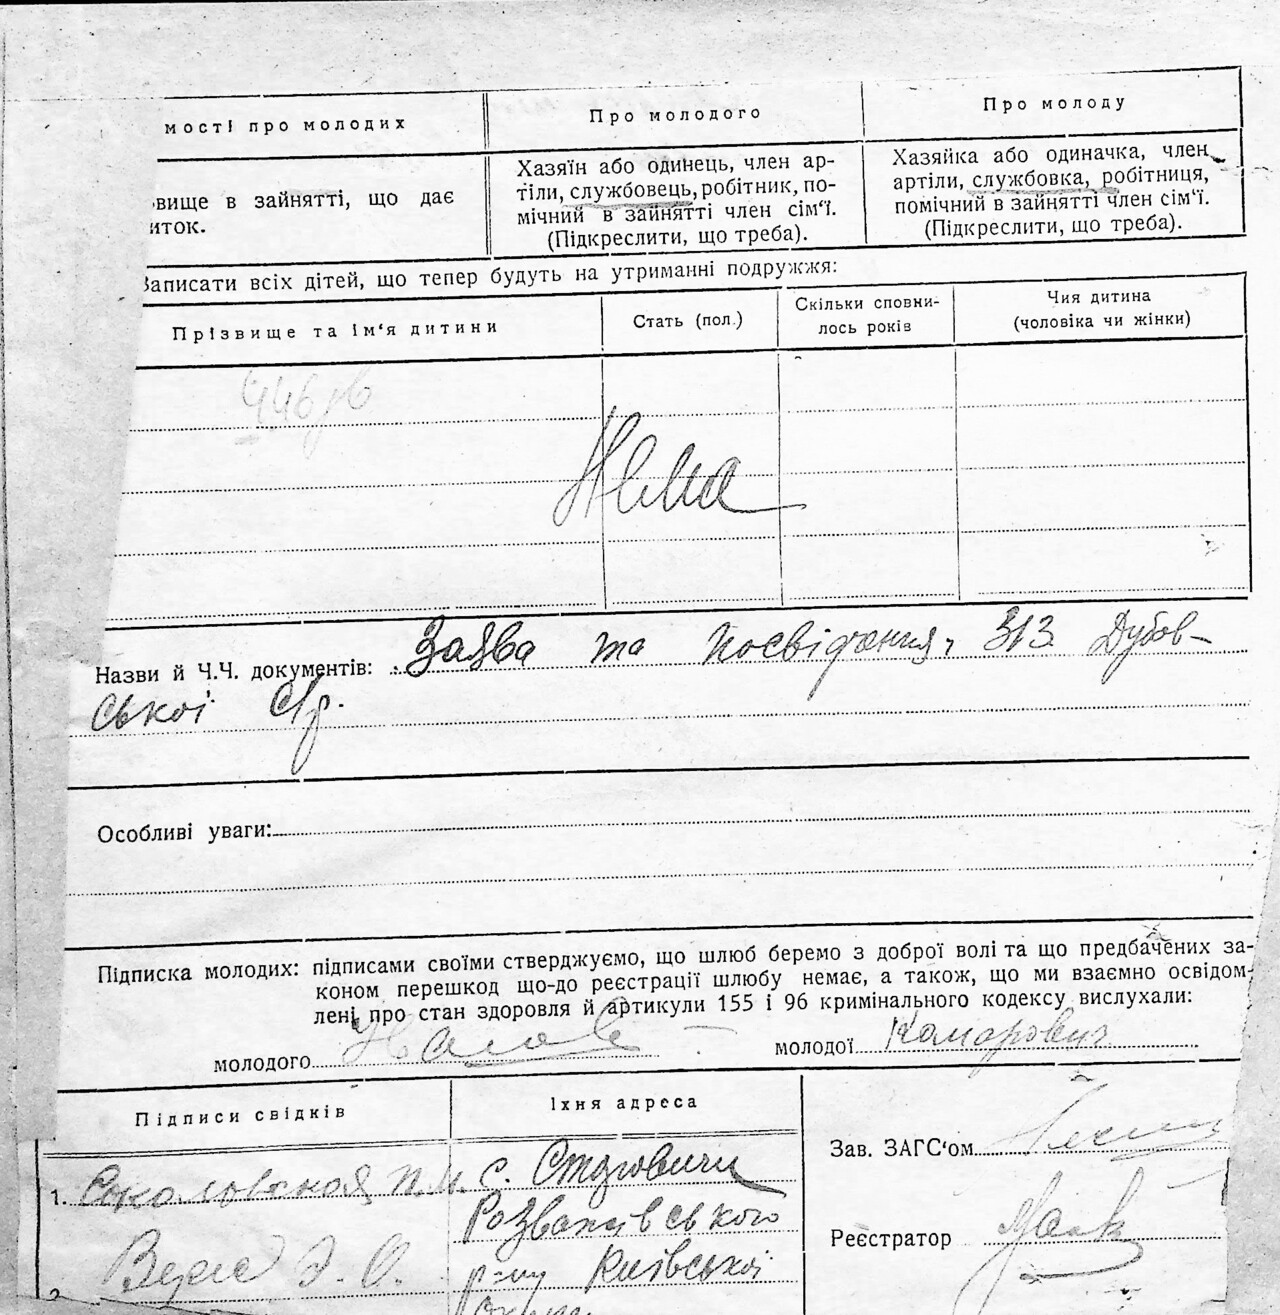 мості про молодих
Про молодого
Про молоду
вище в зайнятті, що дає
иток.
Хазяїн або одинець, член ар-
тіли, службовець, робітник, по-
мічний в зайнятті член сім'ї.
(Підкреслити, що треба).
Хазяйка або одиначка, член
артіли, службовка, робітниця,
помічний в зайнятті член сім'ї.
(Підкреслити, що треба).
Записати всіх дітей, що тепер будуть на утриманні подружжя:
Прізвище та ім'я дитини
Стать (пол.)
Скільки сповни-
лось років
Чия дитина
(чоловіка чи жінки)
Нема
Назви й Ч.Ч. документів: Заява та посвідчення, 313 Дубов-
ської с/р.
Особливі уваги:
Підписка молодих: підписами своїми стверджуємо, що шлюб беремо з доброї волі та що предбачених за-
коном перешкод що-до реєстрації шлюбу немає, а також, що ми взаємно освідом-
лені про стан здоровля й артикули 155 і 96 кримінального кодексу вислухали:
молодого
молодої Комарович
Підписи свідків
Їхня адреса
1.
с. Стаговичи
Розважівського
р-ну Київської
Округи
2
Зав. ЗАГС'ом
Реєстратор